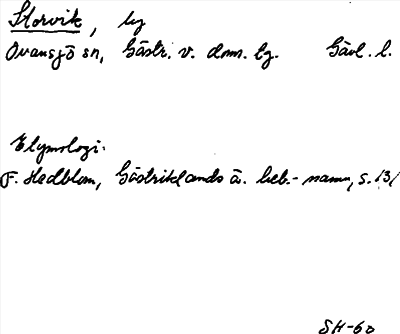 Storvik, by
Ovansjö sn, Gästr. v. doms. Gävl. l.
Etymologi:
F. Hedblom, Gästriklands ä. beb.-namn, s. 131
SH-60